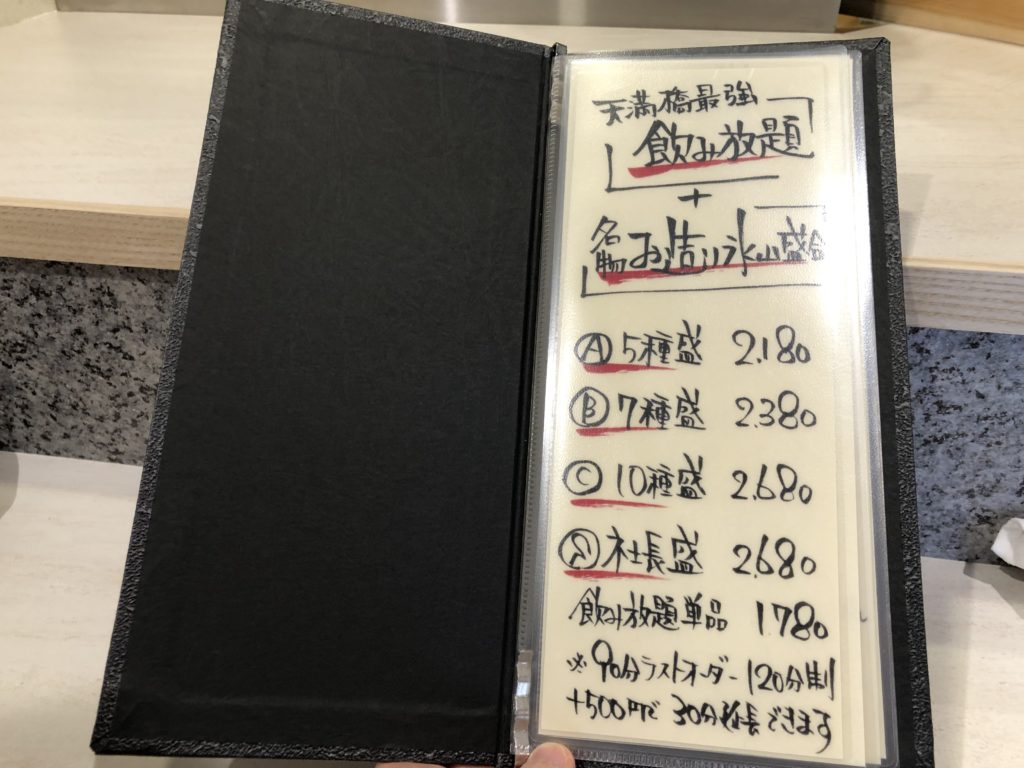 天満橋最強
飲み放題
+
名物お造り氷山盛合
Ⓐ 5種盛 2.180
Ⓑ 7種盛 2.380
Ⓒ 10種盛 2.680
社長盛 2.680
飲み放題単品 1780
※90分ラストオーダー 120分制
+500円で 30分延長できます